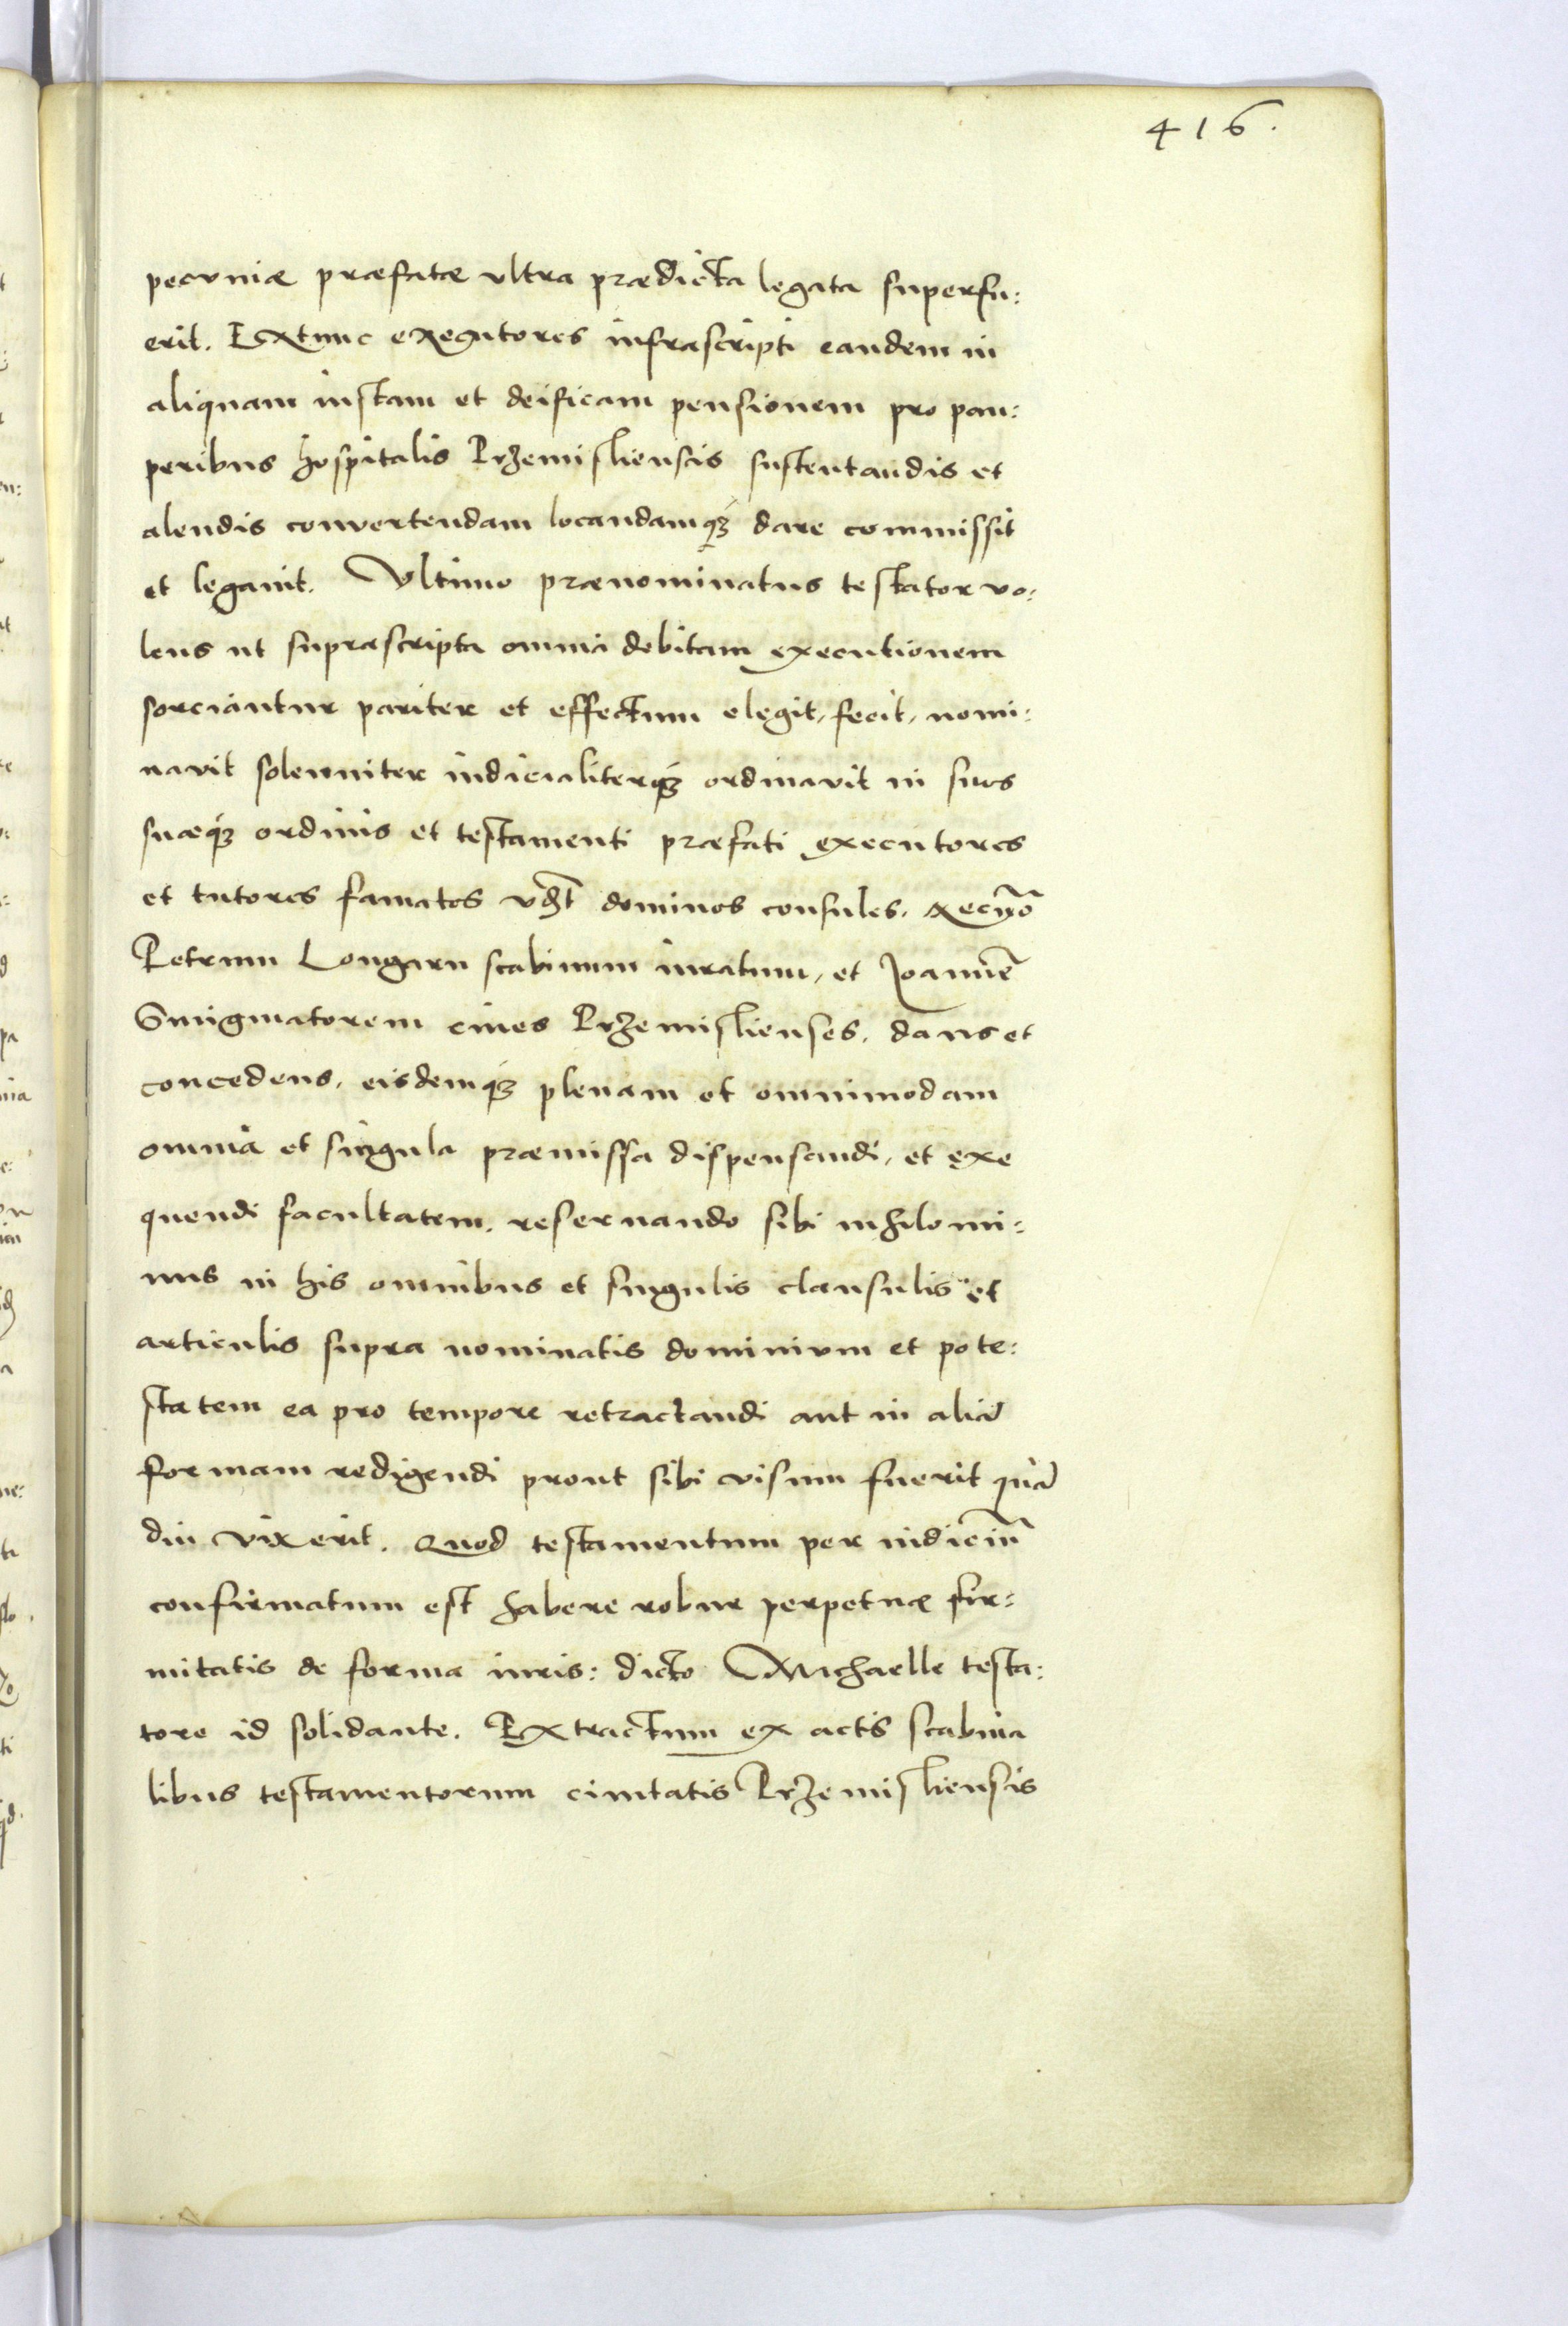 416.
pecuniæ præfatæ vltra prædicta legata superfu:
erit. Extunc exequtores infrascripti eandem in
aliquam iustam et deificam pensionem pro pau:
peribus hospitalis Przemisliensis sustentandis et
alendis convertendam locandamqꝫ dare commissit
et legauit. Vltimo prænominatus testator vo:
lens ut suprascripta omnia debitam executionem
sorciantur pariter et effectum elegit, fecit, nomi:
navit solenniter iudicialiterqꝫ ordinavit in suos
suæqꝫ ordinis et testamenti præfati executores
et tutores famatos vdt̃ dominos consules.
Petrum Longam scabinum iuratum, et Joannẽ
Smigmatorem ciues Przemislienses. dans et
concedens, eisdemqꝫ plenam et omnimodam
omnia et singula præmissa dispensandi, et exe
quendi facultatem, reseruando sibi nihilomi:
nus in his omnibus et singulis clausulis et
articulis supra nominatis dominium et pote:
statem ea pro tempore retractandi aut in aliã
formam redigendi prout sibi visum fuerit quã
diu vixerit. Quod testamentum per iudiciũ
confirmatum est habere robur perpetuæ fir:
mitatis de forma iuris: dicto Michaelle testa:
tore id solidante. Extractum ex actis scabina
libus testamentorum ciuitatis Przemisliensis